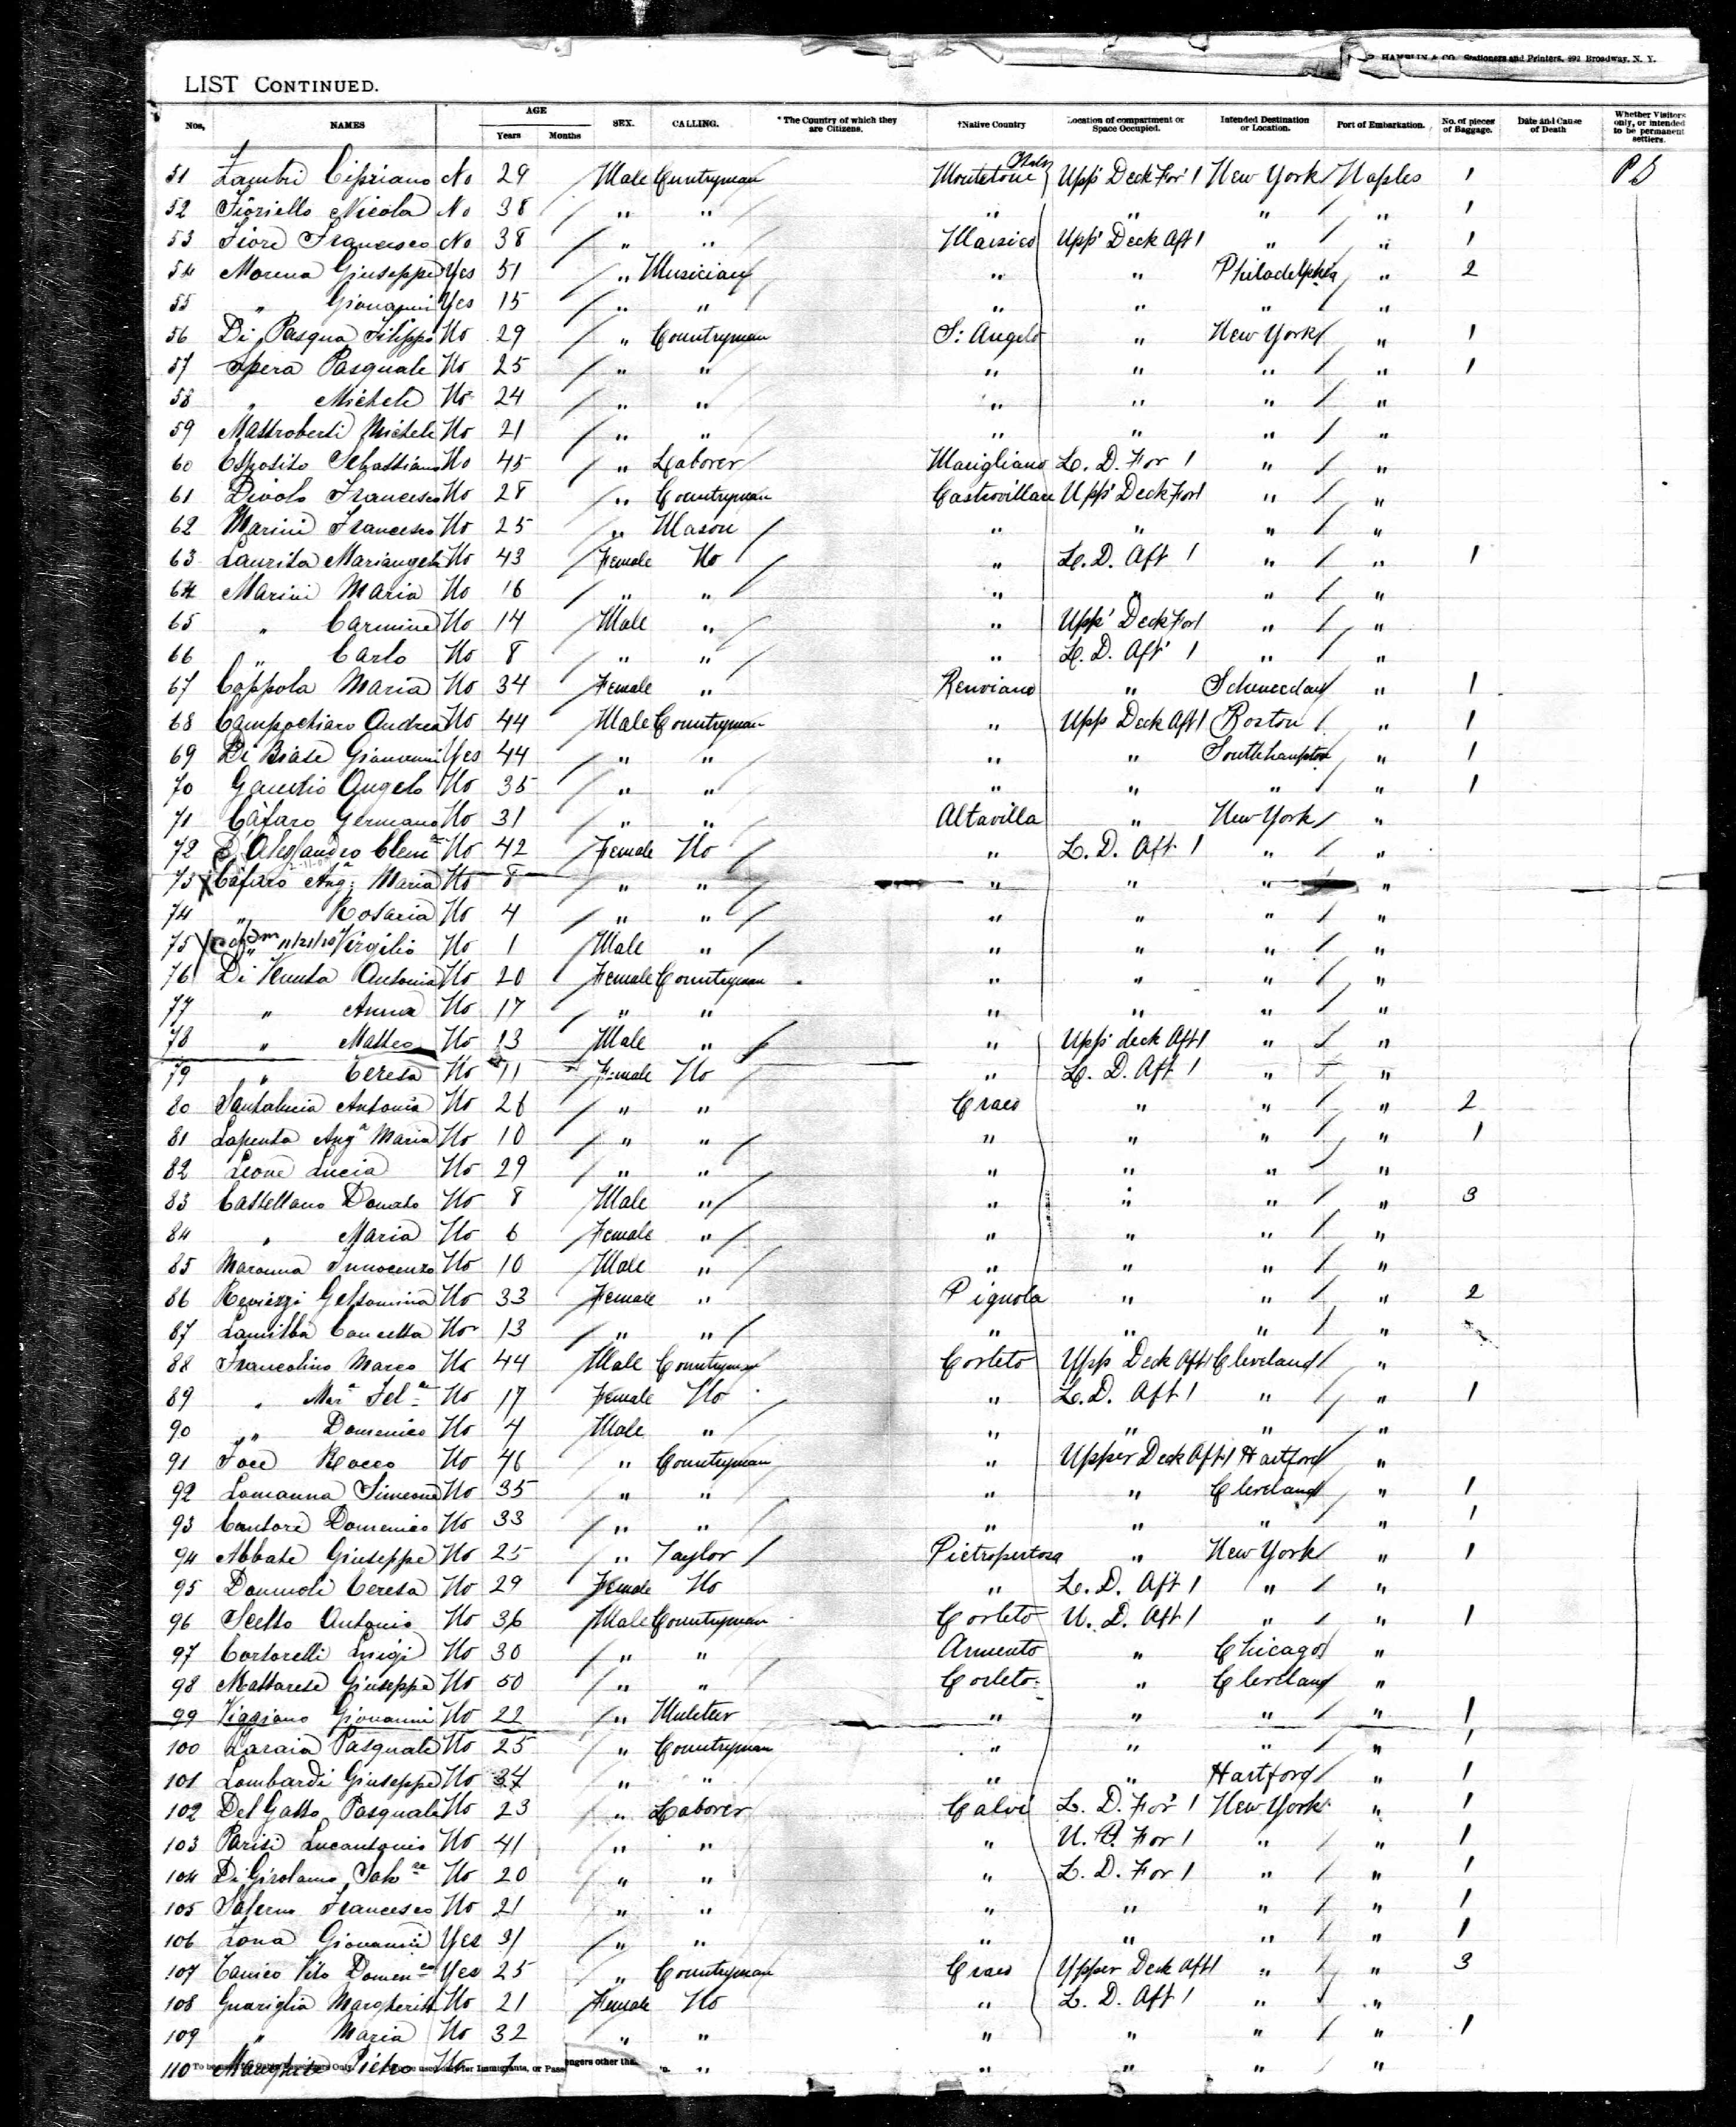 HAMLIN & CO. Stationers and Printers, 692 Broadway, N. Y.
LIST CONTINUED.
Nos, NAMES AGE Years Months SEX. CALLING. *The Country of which they are Citizens. †Native Country Location of compartment or Space Occupied. Intended Destination or Location. Port of Embarkation. No. of pieces of Baggage. Date and Cause of Death Whether Visitors only, or intended to be permanent settlers.
51 Zambri Cipriano No 29 Male Countryman Upp' Deck For' 1 New York Naples 1 PS
52 Fioriello Nicola No 38 " " " " " " 1
53 Fiore Francesco No 38 " " Marsico Upp' Deck Aft 1 " " 1
54 Morena Giuseppe Yes 51 " Musician " " Philadelphia " 2
55 " Giovanni Yes 15 " " " " " "
56 Di Pasqua Filippo No 29 " Countryman S. Angelo " New York " 1
57 Spera Pasquale No 25 " " " " " " 1
58 " Michele No 24 " " " " " "
59 Mastroberti Michele No 21 " " " " " "
60 Esposito Sebastiano No 45 " Laborer Marigliano L. D. For 1 " "
61 Divolo Francesco No 28 " Countryman Castrovillari Upp' Deck For 1 " "
62 Marini Francesco No 25 " Mason " " " "
63 Laurita Mariangela No 43 Female No " L. D. Aft 1 " " 1
64 Marini Maria No 16 " " " " " "
65 " Carmine No 14 Male " " Upp' Deck For 1 " "
66 " Carlo No 8 " " " L. D. Aft 1 " "
67 Coppola Maria No 34 Female " Renviano " " 1
68 Campochiaro Andrea No 44 Male Countryman " Upp Deck Aft 1 Boston " 1
69 Di Biase Giovanni Yes 44 " " " " Southhampton " 1
70 Gaudio Angelo No 35 " " " " " " 1
71 Cafaro Germano No 31 " " Altavilla " New York "
72 D'Alessandro Clem. No 42 Female No " L. D. Aft 1 " "
73 Cafaro Ang. Maria No 8 " " " " " "
74 " Rosaria No 4 " " " " " "
75 " Virgilio No 1 Male " " " " "
76 Di Venuta Antonia No 20 Female Countryman " " " "
77 " Anna No 17 " " " " " "
78 " Matteo No 13 Male " " Upp' deck Aft 1 " "
79 " Teresa No 11 Female No " L. D. Aft 1 " "
80 Santalucia Antonia No 26 " " Craco " " " 2
81 Lapenta Ang.a Maria No 10 " " " " " " 1
82 Leone Lucia No 29 " " " " " "
83 Castellano Donato No 8 Male " " " " " 3
84 " Maria No 6 Female " " " " "
85 Maronna Innocenzo No 10 Male " " " " "
86 Gelsomina No 33 Female " Pignola " " " 2
87 Concetta No 13 " " " " " "
88 Francolino Marco No 44 Male Countryman Corleto Upp Deck Aft Cleveland "
89 " Mar.a Fel.a No 17 Female No " L. D. Aft 1 " " 1
90 " Domenico No 4 Male " " " " "
91 Rocco No 46 " Countryman " Upper Deck Aft 1 Hartford "
92 Lamanna Simeone No 35 " " " " Cleveland " 1
93 Cantore Domenico No 33 " " " " " " 1
94 Abbate Giuseppe No 25 " Taylor Pietropertosa " New York " 1
95 Teresa No 29 Female No " L. D. Aft 1 " "
96 Scelto Antonio No 36 Male Countryman Corleto U. D. Aft 1 " " 1
97 Cortorelli Luigi No 30 " " Armento " Chicago "
98 Mattarese Giuseppe No 50 " " Corleto " Cleveland "
99 Viggiano Giovanni No 22 " Muleteer " " " " 1
100 Laraia Pasquale No 25 " Countryman " " " " 1
101 Lombardi Giuseppe No 34 " " " " Hartford " 1
102 Del Gatto Pasquale No 23 " Laborer Calvi L. D. For 1 New York " 1
103 Parisi Lucantonio No 41 " " " U. D. For 1 " " 1
104 Di Girolamo Salv.re No 20 " " " L. D. For 1 " " 1
105 Salerno Francesco No 21 " " " " " " 1
106 Zona Giovanni Yes 31 " " " " " " 1
107 Vito Domen.co Yes 25 " Countryman Craco Upper Deck Aft 1 " " 3
108 Guariglia Margherita No 21 Female No " L. D. Aft 1 " "
109 " Maria No 32 " " " " " " 1
110 Pietro No " " " " "